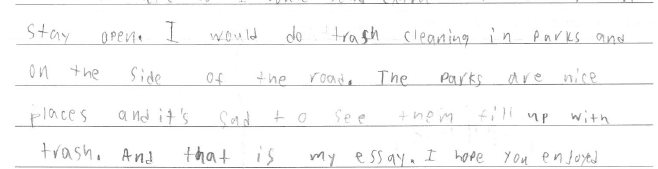 stay open. I would do trash cleaning in parks and
on the side of the road. The parks are nice
places and it's sad to see them fill up with
trash. And that is my essay. I hope you enjoyed